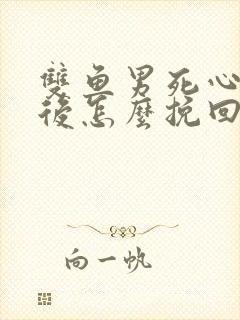 雙魚男死心
後怎麼挽回
向一帆